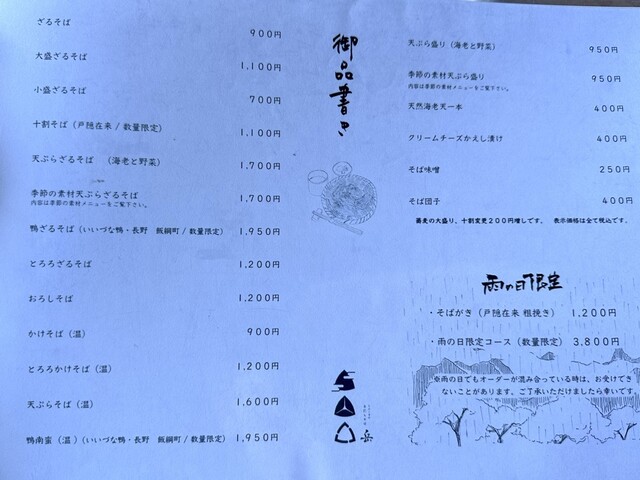 御品書き
ざるそば 900円
大盛ざるそば 1,100円
小盛ざるそば 700円
十割そば（戸隠在来 / 数量限定） 1,100円
天ぷらざるそば （海老と野菜） 1,700円
季節の素材天ぷらざるそば 1,700円
内容は季節の素材メニューをご覧下さい。
鴨ざるそば（いいづな鴨・長野 飯綱町 / 数量限定） 1,950円
とろろざるそば 1,200円
おろしそば 1,200円
かけそば（温） 900円
とろろかけそば（温） 1,200円
天ぷらそば（温） 1,600円
鴨南蛮（温）（いいづな鴨・長野 飯綱町 / 数量限定） 1,950円
天ぷら盛り（海老と野菜） 950円
季節の素材天ぷら盛り 950円
内容は季節の素材メニューをご覧下さい。
天然海老天一本 400円
クリームチーズかえし漬け 400円
そば味噌 250円
そば団子 400円
蕎麦の大盛り、十割変更200円増しです。 表示価格は全て税込です。
雨の日限定
・そばがき（戸隠在来 粗挽き） 1,200円
・雨の日限定コース（数量限定） 3,800円
※雨の日でもオーダーが混み合っている時は、お受けでき
ないことがあります。ご了承いただけましたら幸いです。
岳